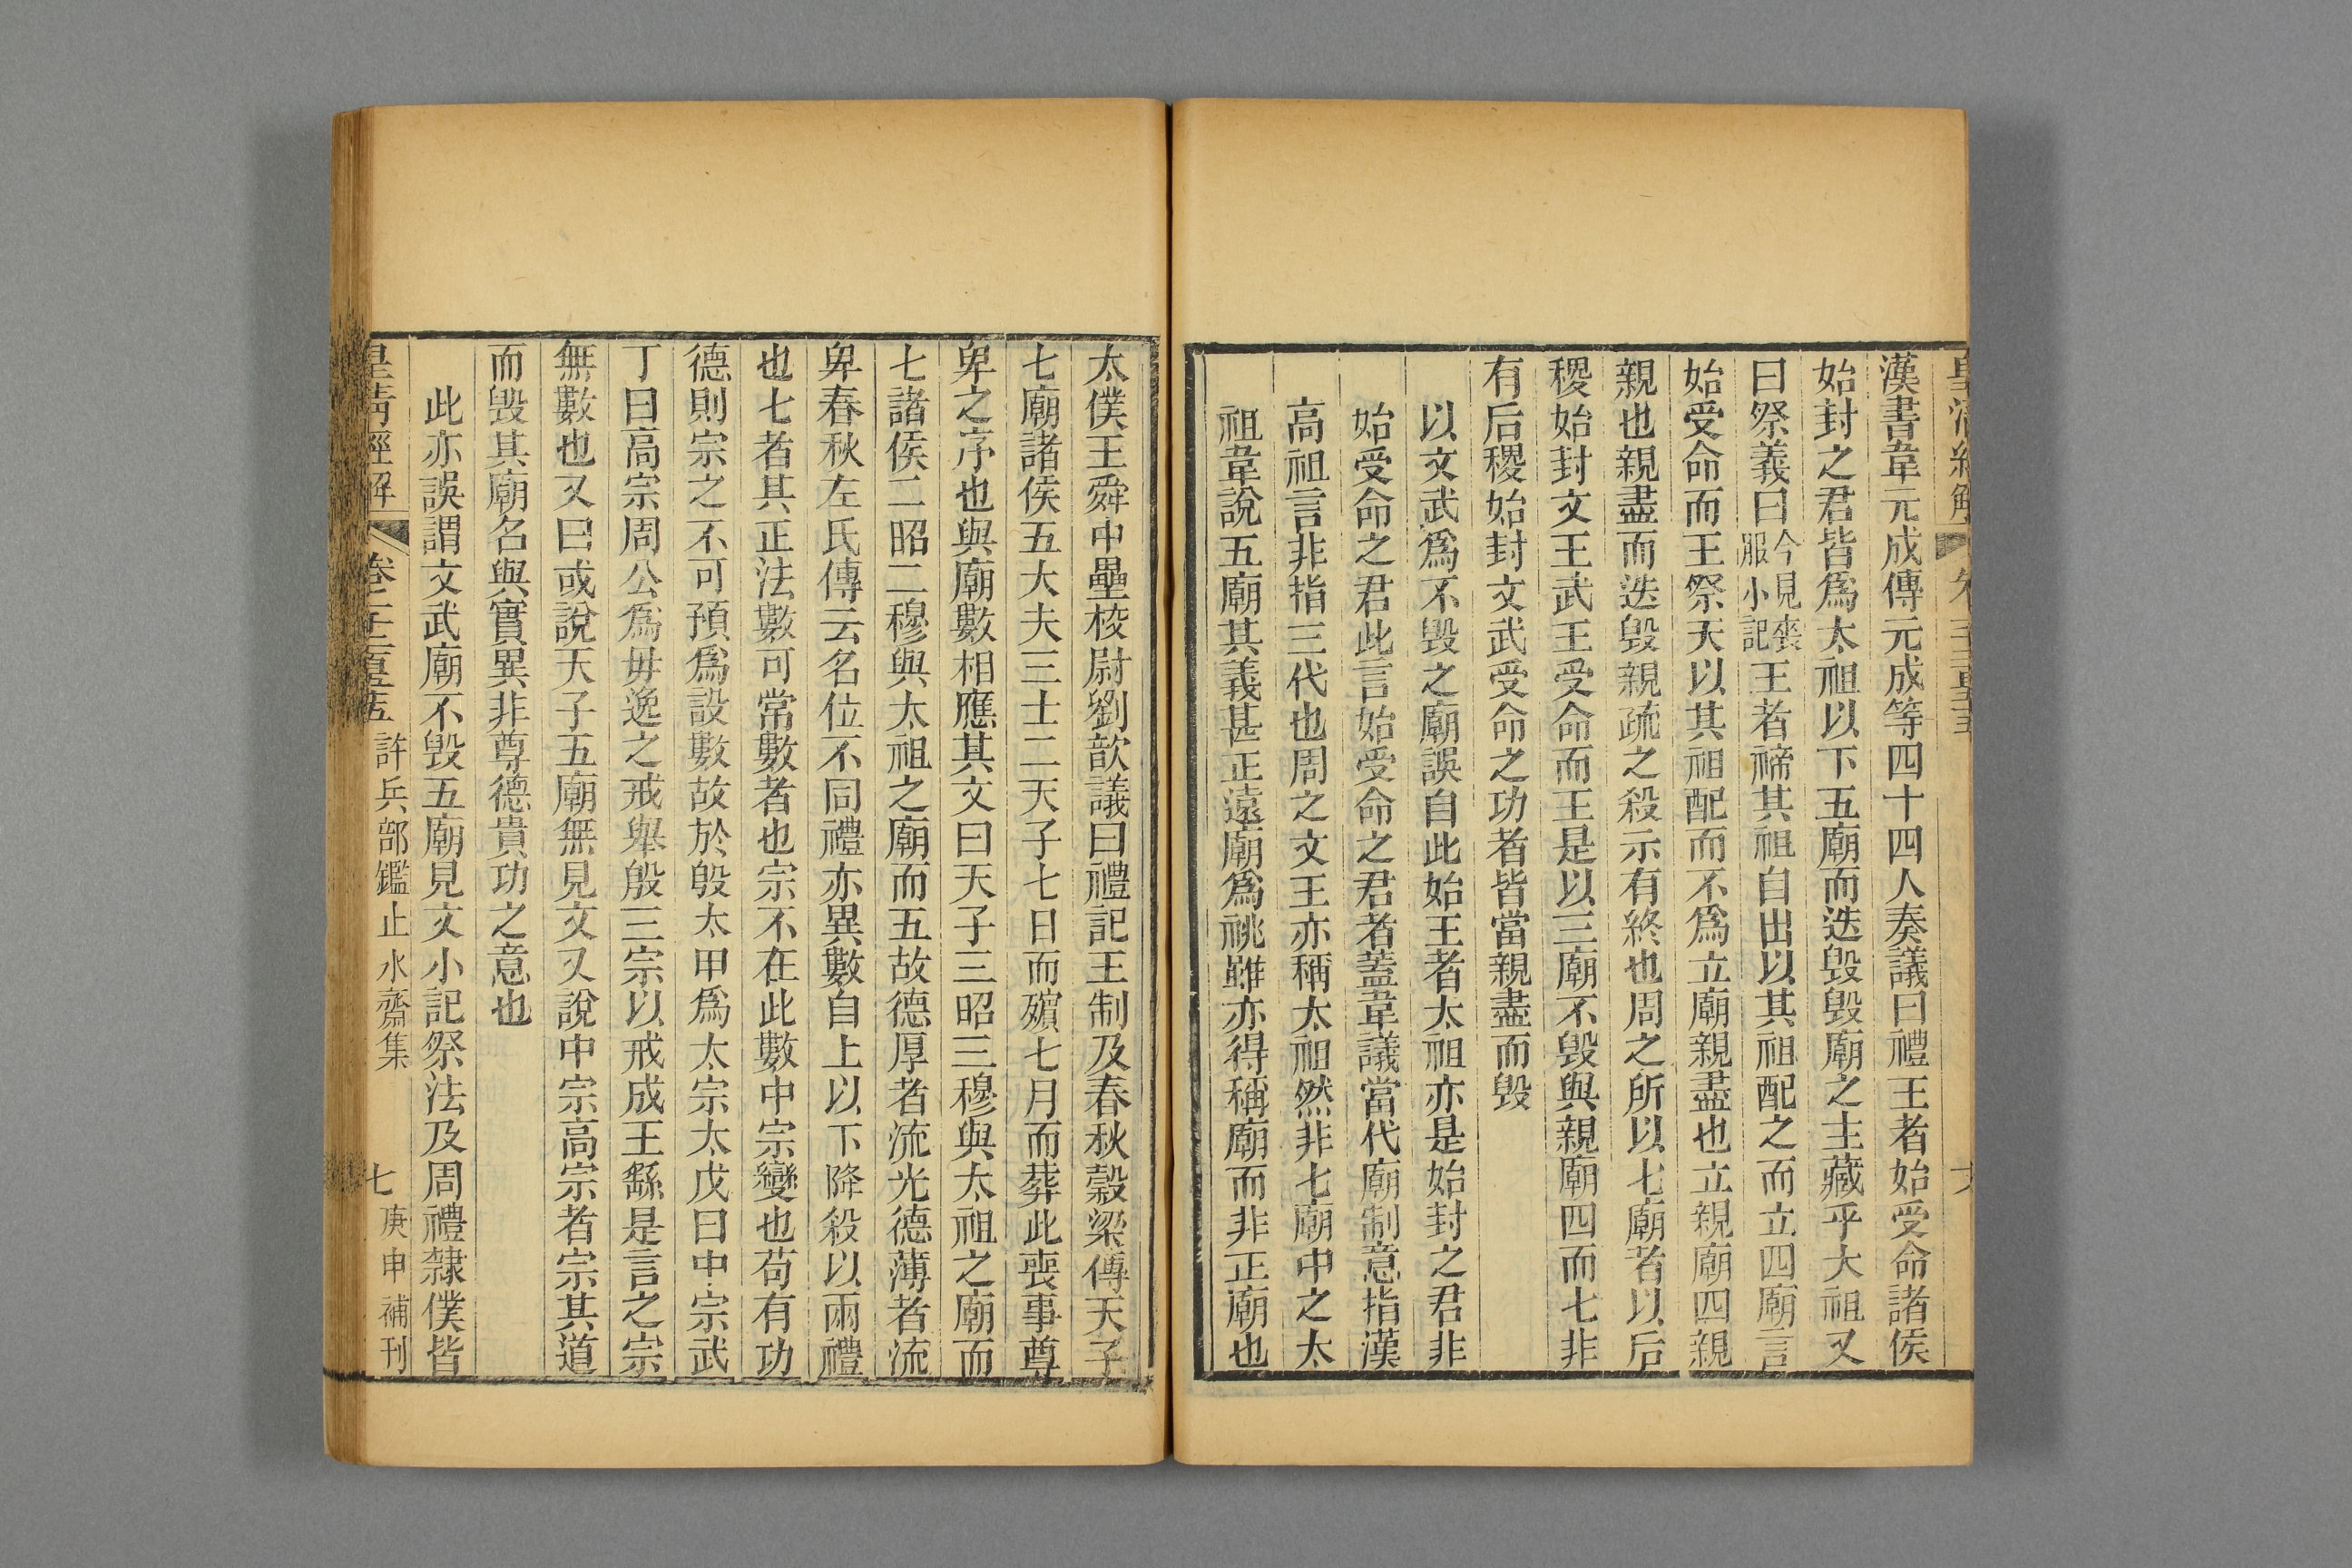 漢書韋元成傳元成等四十四人奏議曰禮王者始受命諸侯
始封之君皆爲太祖以下五廟而迭毀毀廟之主藏乎大祖又
曰祭義曰今見喪服小記王者禘其祖自出以其祖配之而立四廟言
始受命而王祭天以其祖配而不爲立廟親盡也立親廟四親
親也親盡而迭毀親疏之殺示有終也周之所以七廟者以后
稷始封文王武王受命而王是以三廟不毀與親廟四而七非
有后稷始封文武受命之功者皆當親盡而毀
以文武爲不毀之廟誤自此始王者太祖亦是始封之君非
始受命之君此言始受命之君者蓋韋議當代廟制意指漢
高祖言非指三代也周之文王亦稱太祖然非七廟中之太
祖韋說五廟其義甚正遠廟爲祧雖亦得稱廟而非正廟也
太僕王舜中壘校尉劉歆議曰禮記王制及春秋穀梁傳天子
七廟諸侯五大夫三士二天子七日而殯七月而葬此喪事尊
卑之序也與廟數相應其文曰天子三昭三穆與太祖之廟而
七諸侯二昭二穆與太祖之廟而五故德厚者流光德薄者流
卑春秋左氏傳云名位不同禮亦異數自上以下降殺以兩禮
也七者其正法數可常數者也宗不在此數中宗變也苟有功
德則宗之不可預爲設數故於殷太甲爲太宗太戊曰中宗武
丁曰高宗周公爲毋逸之戒舉殷三宗以戒成王繇是言之宗
無數也又曰或說天子五廟無見文又說中宗高宗者宗其道
而毀其廟名與實異非尊德貴功之意也
此亦誤謂文武廟不毀五廟見文小記祭法及周禮隸僕皆
皇清經解 卷三百二十五 許兵部鑑止水齋集 七 庚申補刊